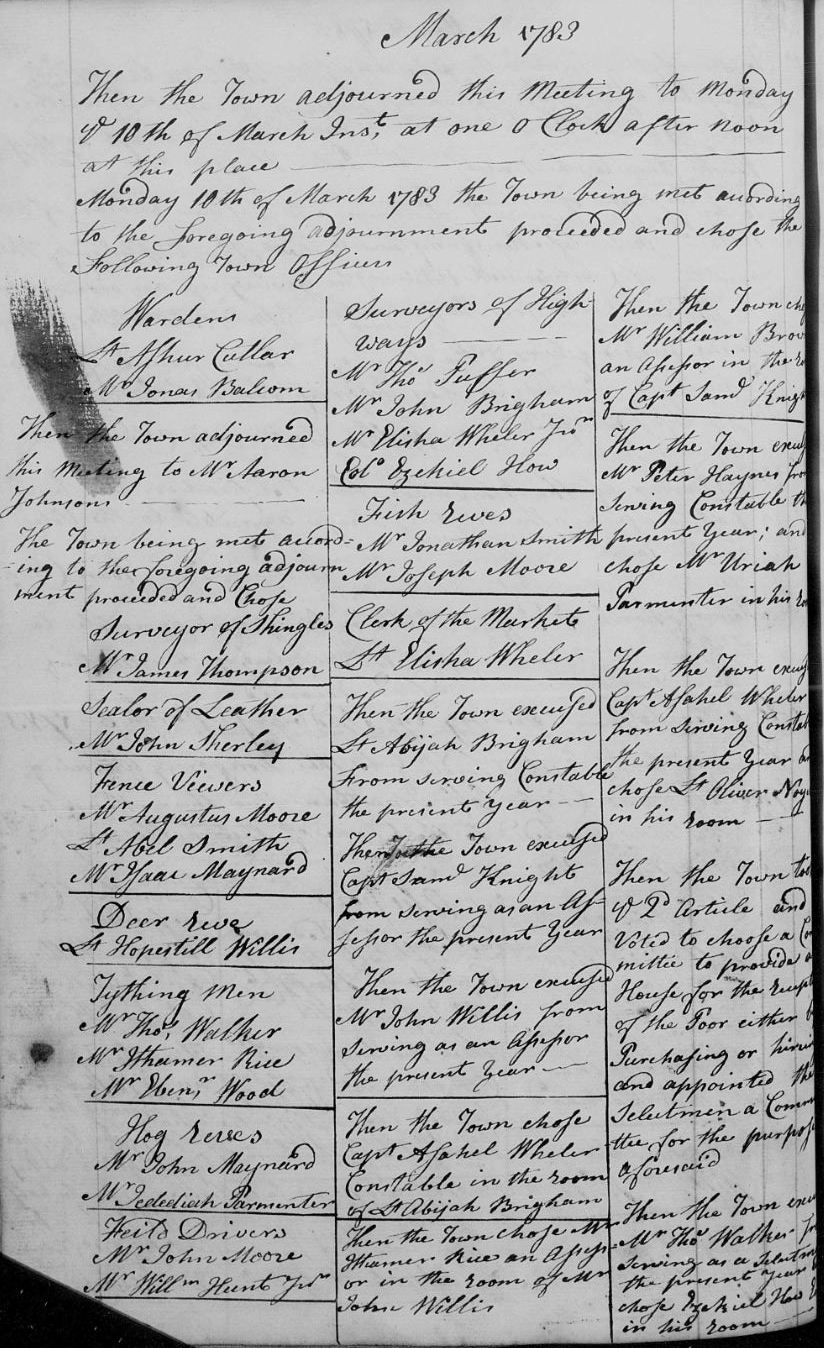 March 1783
Then the Town adjourned this Meeting to Monday
ye 10th of March Inst at one o Clock after noon
at this place
Monday 10th of March 1783 the Town being met acording
to the foregoing adjournment proceeded and chose the
Following Town Officers
Wardens
Lt Ashur Cutlar
Mr Jonas Balcom
Then the Town adjourned
this Meeting to Mr Aaron
Johnsons
The Town being met acord-
ing to the foregoing adjourn
ment proceeded and Chose
Surveyor of Shingles
Mr James Thompson
Sealor of Leather
Mr John Sherley
Fence Viewers
Mr Augustus Moore
Lt Abel Smith
Mr Isaac Maynard
Deer reve
Lt Hopestill Willis
Tything men
Mr Thos Walker
Mr Ithamer Rice
Mr Ebenr Wood
Hog reves
Mr John Maynard
Mr Jedediah Parmenter
Feild Drivers
Mr John Moore
Mr Willm Hunt Jnr
Surveyors of High-
ways
Mr Thos Puffer
Mr John Brigham
Mr Elisha Wheler Jnr
Colo Ezekiel How
Fish reves
Mr Jonathan Smith
Mr Joseph Moore
Clerk of the Markets
Lt Elisha Wheler
Then the Town excused
Lt Abijah Brigham
From serving Constable
the present Year
Then the Town excused
Capt Saml Knight
from serving as an As-
sessor the present Year
Then the Town excused
Mr John Willis from
serving as an Assessor
the present Year
Then the Town chose
Capt Asahel Wheler
Constable in the room
of Lt Abijah Brigham
Then the Town chose Mr
Ithamer Rice an Assess-
or in the room of Mr
John Willis
Then the Town
Mr William
an Assessor in the
of Capt Saml
Then the Town
Mr Peter Haynes
serving Constable
present Year; and
chose Mr Uriah
Parmenter in his
Then the Town
Capt Asahel Wheler
from serving
the present Year
chose Lt Oliver
in his room
Then the Town
ye 2d Article and
Voted to choose a
mittee to provide
House for the
of the Poor either
Purchasing or
and appointed
Selectmen a
ttee for the
aforesaid
Then the Town
Mr Thos Walker
serving as a
the present Year
chose Ezekiel How
in his room